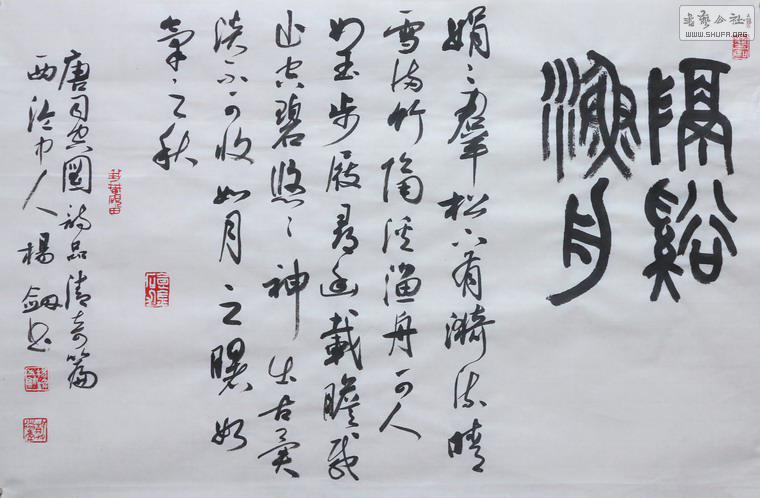 书艺公社
WWW.SHUFA.ORG
隔谿
漁舟
娟〻羣松下有漪流晴
雪满竹隔溪渔舟可人
如玉步屧尋幽載瞻載
止空碧悠〻神出古異
淡不可收如月之曙如
氣之秋
唐司空圖詩品清奇篇
西泠中人楊劍書